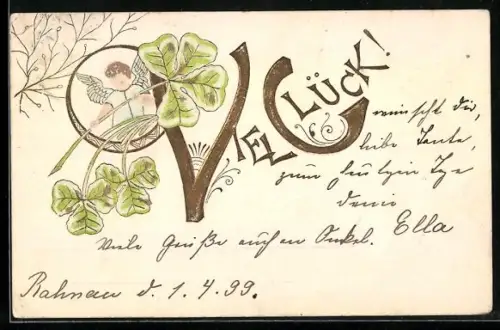 VIEL GLÜCK!
wünscht dir,
liebe Tante,
zum heutgen Tge
deine
Ella
Viele Grüße auch an Onkel.
Rahnau d. 1.4.99.